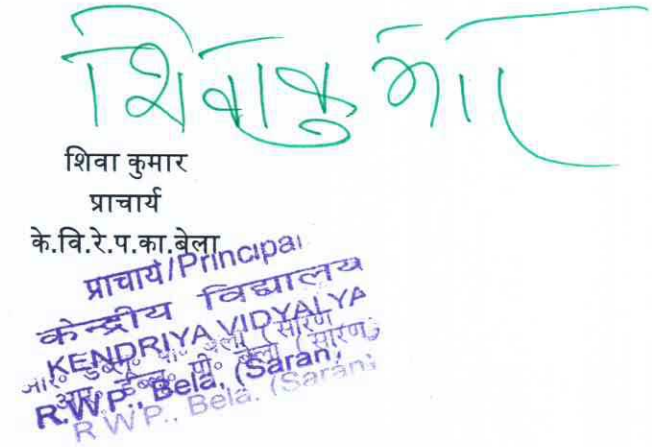 शिवाकुमार
शिवा कुमार
प्राचार्य
के.वि.रे.प.का.बेला
प्राचार्य/Principal
केन्द्रीय विद्यालय
KENDRIYA VIDYALYA
आर० डब्लू० पी० बेला (सारण)
R.W.P., Bela, (Saran)
R.W.P., Bela, (Saran)